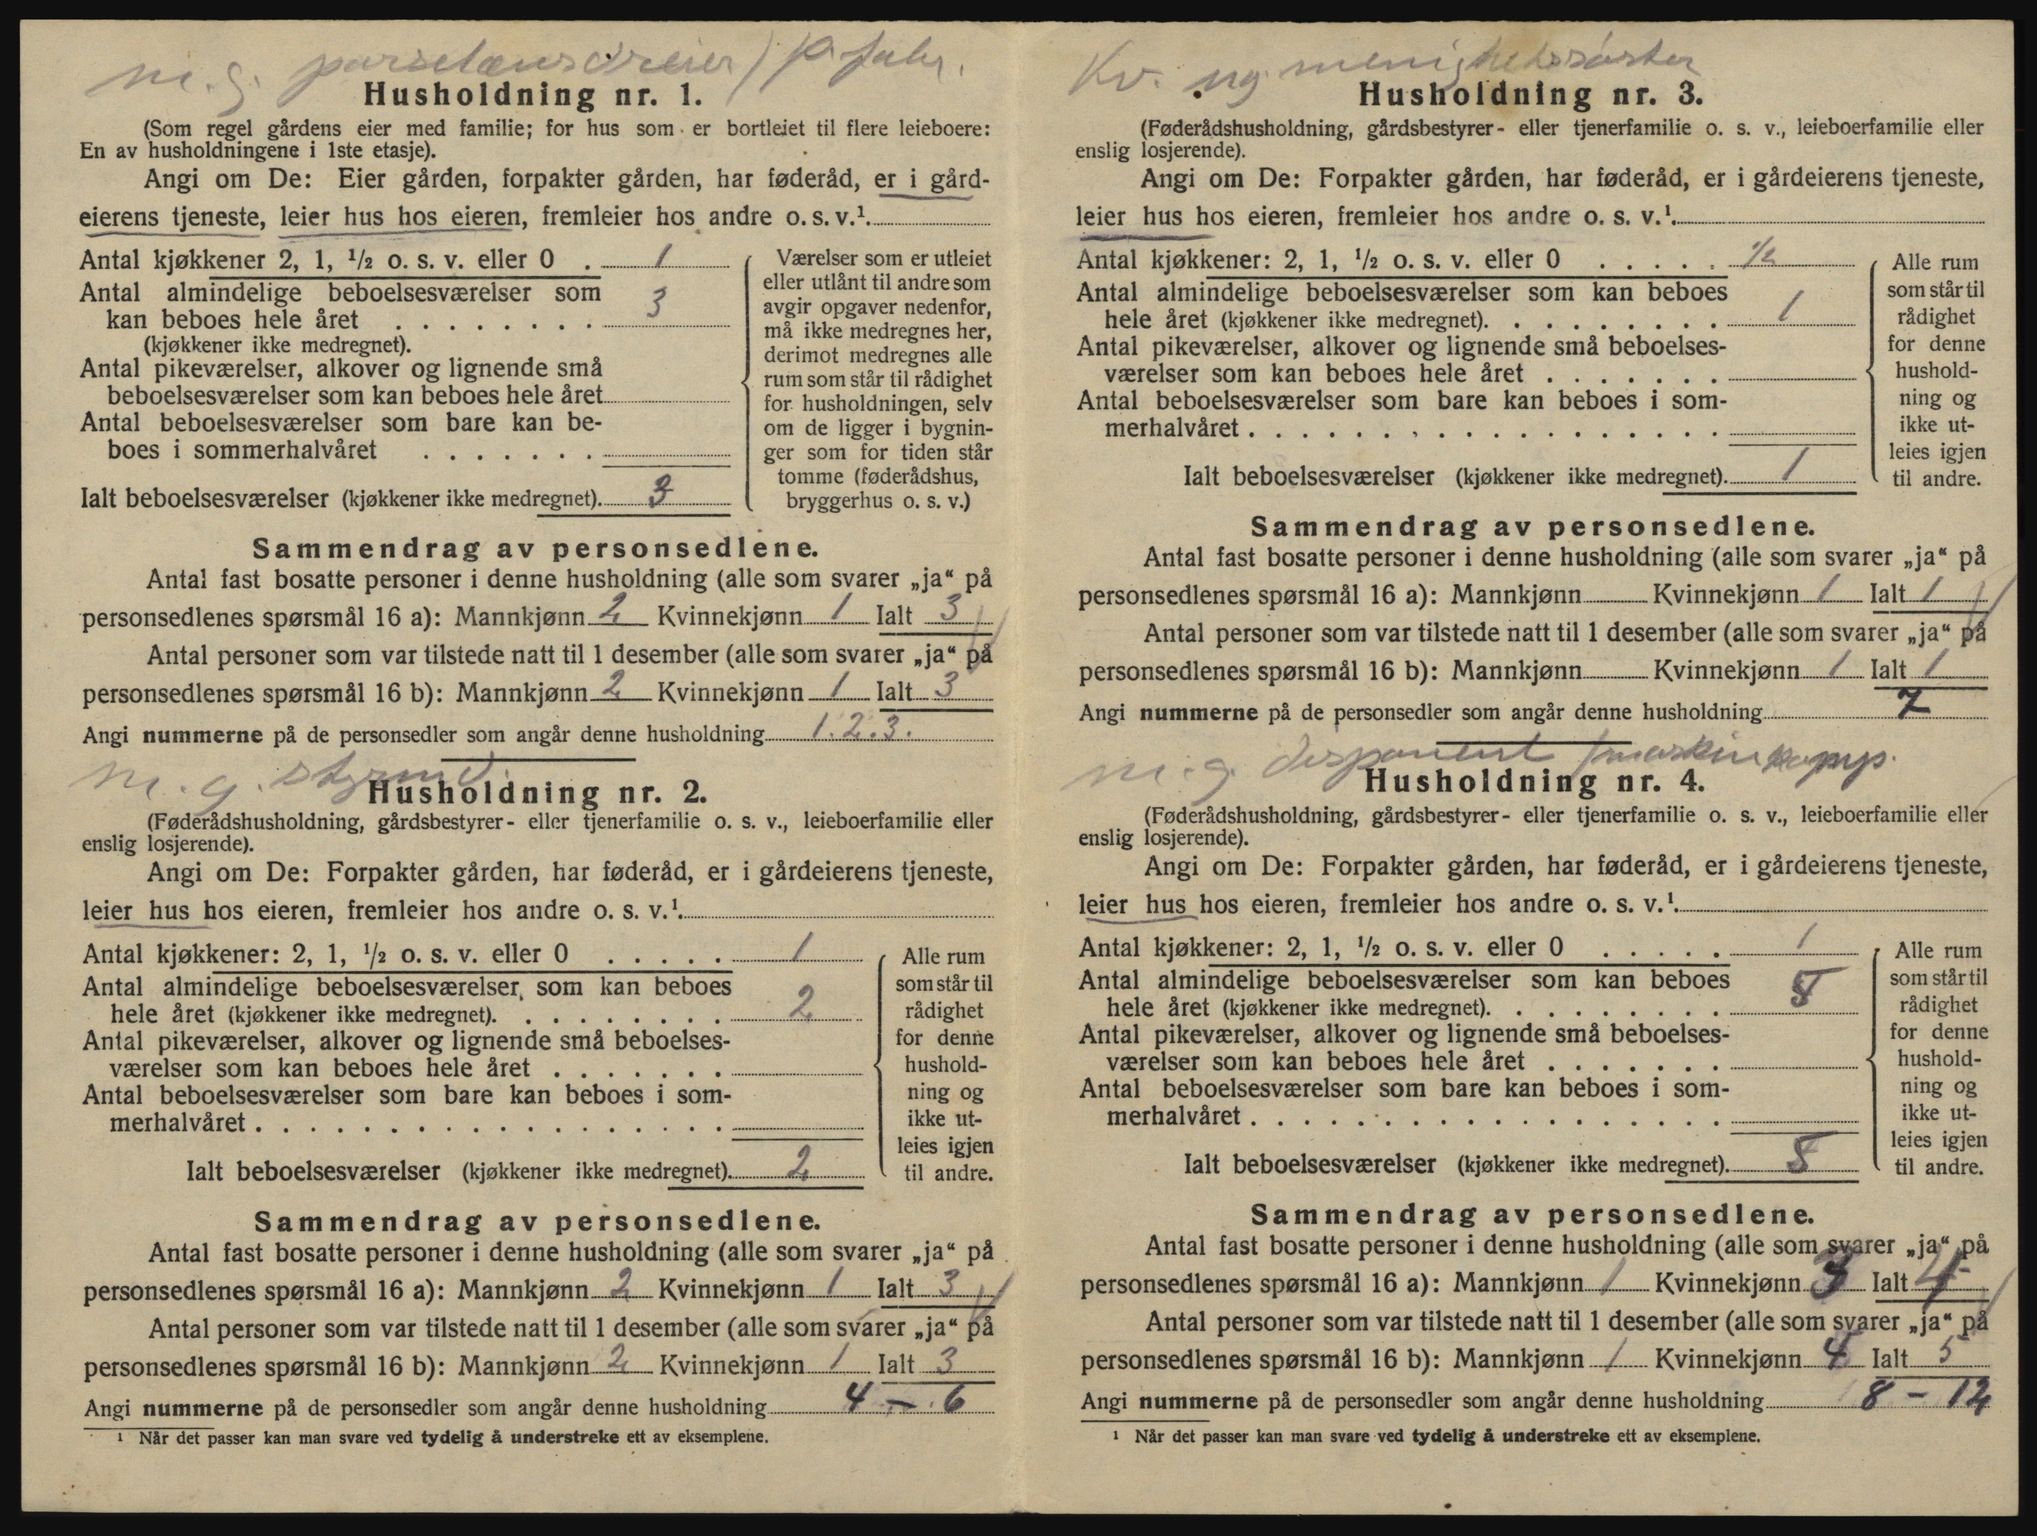 m. g. porselænsdreier / p. fabr.
Husholdning nr. 1.
(Som regel gårdens eier med familie; for hus som er bortleiet til flere leieboere:
En av husholdningene i 1ste etasje).
Angi om De: Eier gården, forpakter gården, har føderåd, er i gård-
eierens tjeneste, leier hus hos eieren, fremleier hos andre o. s. v.¹
Antal kjøkkener 2, 1, ½ o. s. v. eller 0 . 1
Antal almindelige beboelsesværelser som
kan beboes hele året . . . . . . . . 3
(kjøkkener ikke medregnet).
Antal pikeværelser, alkover og lignende små
beboelsesværelser som kan beboes hele året
Antal beboelsesværelser som bare kan be-
boes i sommerhalvåret . . . . . . .
Ialt beboelsesværelser (kjøkkener ikke medregnet). 3
Værelser som er utleiet
eller utlånt til andre som
avgir opgaver nedenfor,
må ikke medregnes her,
derimot medregnes alle
rum som står til rådighet
for husholdningen, selv
om de ligger i bygnin-
ger som for tiden står
tomme (føderådshus,
bryggerhus o. s. v.)
Sammendrag av personsedlene.
Antal fast bosatte personer i denne husholdning (alle som svarer „ja“ på
personsedlenes spørsmål 16 a): Mannkjønn 2 Kvinnekjønn 1 Ialt 3
Antal personer som var tilstede natt til 1 desember (alle som svarer „ja“ på
personsedlenes spørsmål 16 b): Mannkjønn 2 Kvinnekjønn 1 Ialt 3
Angi nummerne på de personsedler som angår denne husholdning 1. 2. 3.
m. g. styrmd.
Husholdning nr. 2.
(Føderådshusholdning, gårdsbestyrer- eller tjenerfamilie o. s. v., leieboerfamilie eller
enslig losjerende).
Angi om De: Forpakter gården, har føderåd, er i gårdeierens tjeneste,
leier hus hos eieren, fremleier hos andre o. s. v.¹
Antal kjøkkener: 2, 1, ½ o. s. v. eller 0 . . . . . 1
Antal almindelige beboelsesværelser, som kan beboes
hele året (kjøkkener ikke medregnet). . . . . . . . . 2
Antal pikeværelser, alkover og lignende små beboelses-
værelser som kan beboes hele året . . . . . . .
Antal beboelsesværelser som bare kan beboes i som-
merhalvåret . . . . . . . . . . . . . . . . . .
Ialt beboelsesværelser (kjøkkener ikke medregnet). 2
Alle rum
som står til
rådighet
for denne
hushold-
ning og
ikke ut-
leies igjen
til andre.
Sammendrag av personsedlene.
Antal fast bosatte personer i denne husholdning (alle som svarer „ja“ på
personsedlenes spørsmål 16 a): Mannkjønn 2 Kvinnekjønn 1 Ialt 3
Antal personer som var tilstede natt til 1 desember (alle som svarer „ja“ på
personsedlenes spørsmål 16 b): Mannkjønn 2 Kvinnekjønn 1 Ialt 3
Angi nummerne på de personsedler som angår denne husholdning 4 – 6
¹ Når det passer kan man svare ved tydelig å understreke ett av eksemplene.
Kv. ug. menighetssøster
Husholdning nr. 3.
(Føderådshusholdning, gårdsbestyrer- eller tjenerfamilie o. s. v., leieboerfamilie eller
enslig losjerende).
Angi om De: Forpakter gården, har føderåd, er i gårdeierens tjeneste,
leier hus hos eieren, fremleier hos andre o. s. v.¹
Antal kjøkkener: 2, 1, ½ o. s. v. eller 0 . . . . . ½
Antal almindelige beboelsesværelser som kan beboes
hele året (kjøkkener ikke medregnet). . . . . . . . . 1
Antal pikeværelser, alkover og lignende små beboelses-
værelser som kan beboes hele året . . . . . . .
Antal beboelsesværelser som bare kan beboes i som-
merhalvåret . . . . . . . . . . . . . . . . . .
Ialt beboelsesværelser (kjøkkener ikke medregnet). 1
Alle rum
som står til
rådighet
for denne
hushold-
ning og
ikke ut-
leies igjen
til andre.
Sammendrag av personsedlene.
Antal fast bosatte personer i denne husholdning (alle som svarer „ja“ på
personsedlenes spørsmål 16 a): Mannkjønn Kvinnekjønn 1 Ialt 1
Antal personer som var tilstede natt til 1 desember (alle som svarer „ja“ på
personsedlenes spørsmål 16 b): Mannkjønn Kvinnekjønn 1 Ialt 1
Angi nummerne på de personsedler som angår denne husholdning 7
m. g. disponent / maskinkomp.
Husholdning nr. 4.
(Føderådshusholdning, gårdsbestyrer- eller tjenerfamilie o. s. v., leieboerfamilie eller
enslig losjerende).
Angi om De: Forpakter gården, har føderåd, er i gårdeierens tjeneste,
leier hus hos eieren, fremleier hos andre o. s. v.¹
Antal kjøkkener: 2, 1, ½ o. s. v. eller 0 . . . . . 1
Antal almindelige beboelsesværelser som kan beboes
hele året (kjøkkener ikke medregnet). . . . . . . . . 5
Antal pikeværelser, alkover og lignende små beboelses-
værelser som kan beboes hele året . . . . . . .
Antal beboelsesværelser som bare kan beboes i som-
merhalvåret . . . . . . . . . . . . . . . . . .
Ialt beboelsesværelser (kjøkkener ikke medregnet). 5
Alle rum
som står til
rådighet
for denne
hushold-
ning og
ikke ut-
leies igjen
til andre.
Sammendrag av personsedlene.
Antal fast bosatte personer i denne husholdning (alle som svarer „ja“ på
personsedlenes spørsmål 16 a): Mannkjønn 1 Kvinnekjønn 3 Ialt 4
Antal personer som var tilstede natt til 1 desember (alle som svarer „ja“ på
personsedlenes spørsmål 16 b): Mannkjønn 1 Kvinnekjønn 4 Ialt 5
Angi nummerne på de personsedler som angår denne husholdning 8 – 12
¹ Når det passer kan man svare ved tydelig å understreke ett av eksemplene.